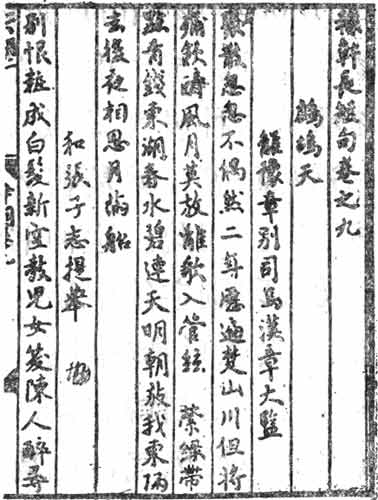 稼軒長短句卷之九
鷓鴣天
離豫章別司馬漢章大監
聚散怱怱不偶然二年歷遍楚山川但將
痛飲酬風月莫放離歌入管絃 縈綠帶
點青錢東湖春水碧連天明朝放我東歸
去後夜相思月滿船
和張子志提舉
別恨粧成白髮新空教兒女笑陳人醉尋